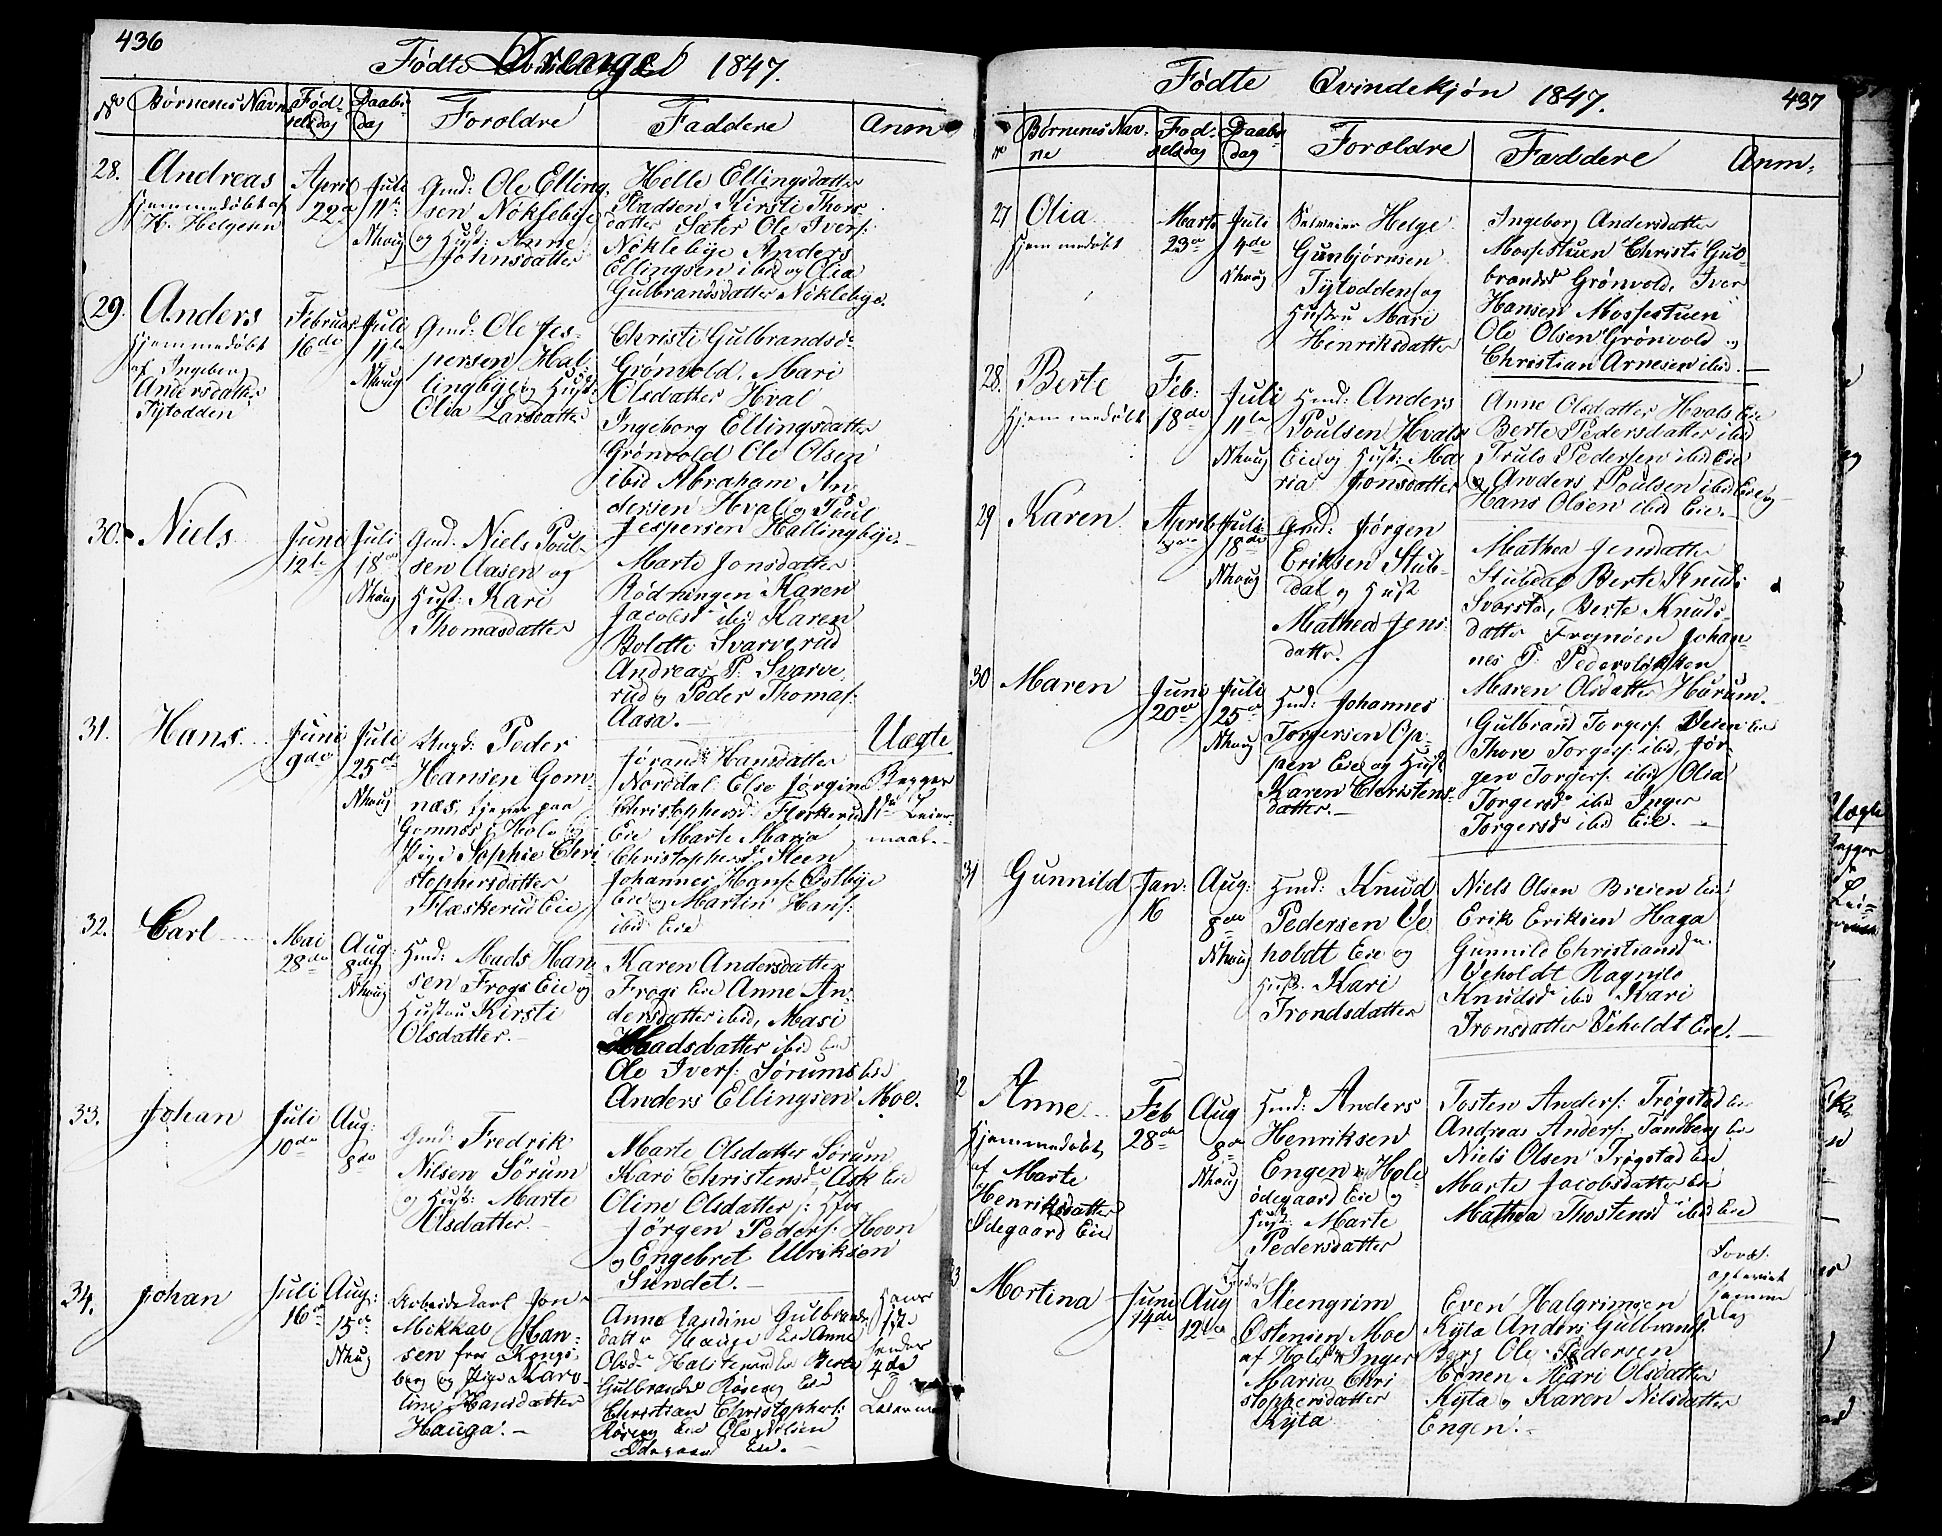 436
Fødte Drenge 1847.
No Børnenes Navne Fødselsdag Daabsdag Forældre Faddere Anm
28. Andreas
Hjemmedøbt af
H. Helgesen
April
22de
Juli
11te
Nhoug
Gmd: Ole Elling-
sen Nöklebÿe
og Hust: Anne
Johnsdatter
Helle Ellingsdatter
Pladsen Kirsti Thors-
datter Sæter Ole Ivers:
Nöklebÿe Anders
Ellingsen ibid og Olia
Gulbrandsdatter Nöklebÿe.
29. Anders
Hjemmedøbt
af Ingebor
Andersdatter
Tÿtodden
Februar
16de
Juli
11te
Nhoug
Gmd: Ole Jes-
persen Hal-
lingbÿe og Hust:
Olia Larsdatter
Christi Gulbrandsd
Grönvold, Mari
Olsdatter Hval
Ingeborg Ellingsdatter
Grönvold Ole Olsen
ibid Abraham An-
dersen Hval og Poul
Jespersen Hallingbÿe.
30. Niels
Juni
12te
Juli
18de
Nhoug
Gmd: Niels Poul-
sen Aasen og
Hust: Kari
Thomasdatter
Marte Jonsdatter
Rödningen Karen
Jacobsd ibid Karen
Bolette Svarverud
Andreas P: Svarve-
rud og Peder Thomas:
Aasa.
31. Hans
Juni
9de
Juli
25de
Nhoug
Ungk: Peder
Hansen Gom-
næs, tjener paa
Gomnæs i Hole og
Pige Sophie Chri-
stophersdatter
Flæskerud Eie
Jörand Hansdatter
Norddal Else Jörgine
Christophersd: Fleskerud
Eie Marte Maria
Christophersd Steen
Johannes Hans: Östbÿe
Eie og Martin Hans:
ibid Eie
Uægte
Begges
1ste Leier-
maal.
32. Carl
Mai
28de
Aug:
8de
Nhoug
Hmd: Mads Han-
sen Frogs Eie og
Hustru Kirsti
Olsdatter.
Karen Andersdatter
Frogs Eie Anne An-
dersdatter ibid, Mari
Maadsdatter ibid Eie
Ole Ivers: Sörums Eie
Anders Ellingsen Moe.
33. Johan
Juli
10de
Aug:
8de
Gmd: Fredrik
Nilsen Sörum
og Hust: Marte
Olsdatter.
Marte Olsdatter Sörum
Kari Christensd Ask Eie
Oline Olsdatter
Jörgen Peders: Hovn
og Engebret Ulriksen
Sundet.
34. Johan
Juli
16de
Aug:
15de
Nhug
Arbeidskarl Jon
Mikkal Han-
sen fra Kongs-
berg og Pige Karo-
line Hansdatter
Hauga.
Anne Randine Gulbrands-
datter Hauge Eie Anne
Olsd Halsterud Eie Berte
Gulbrandsd Röseng Eie
Christian Christophers:
Röseng Eie Ole Nilsen
Ödegaard Eie.
Hans
1ste
hendes
4de
Leierm
Fødte Qvindekjön 1847. 437
No Børnenes Navne Fødselsdag Daabsdag Forældre Faddere Anm.
27 Olia
Hjemmedøbt
Marts
23de
Juli
4de
Nhoug
Selveier Helge
Gunbjörnsen
Tÿtodden og
Hustru Mari
Henriksdatter
Ingeborg Andersdatter
Mosfestuen Christi Gul-
brandsd Grönvold, Iver
Hansen Mosfestuen
Ole Olsen Grönvold og
Christian Arnesen ibid.
28. Berte
Hjemmedøbt
Feb:
18de
Juli
11te
Nhoug
Hmd: Anders
Poulsen Hvals
Eie og Hust: Ma-
ria Jonsdatter
Anne Olsdatter Hvals Eie
Berte Pedersdatter ibid
Truls Pedersen ibid Eie
og Anders Poulsen ibid Eie og
Hans Olsen ibid Eie.
29 Karen
April
Juli
18de
Nhoug
Gmd: Jörgen
Eriksen Stub-
dal og Hust
Mathea Jens-
datter.
Mathea Jensdatter
Stubdal Berte Knuds:
Svarstad, Berte Knuds-
datter Frognöen Johan-
nes P: Pederslökken
Maren Olsdatter Hurum.
30 Maren
Juni
20de
Juli
25de
Nhoug
Hmd: Johannes
Torgersen Op-
pen Eie og Hust
Karen Christens-
datter.
Gulbrand Torgers: Veien Eie
Thore Torgers: ibid, Jör-
gen Torgers: ibid Olia
Torgersd ibid Inger
Torgersd ibid Eie.
31 Gunnild
Jan:
16
Aug:
8de
Nhoug
Hmd: Knud
Pedersen Ve-
holdt Eie og
Hust. Kari
Trondsdatter
Niels Olsen Breien Eie
Erik Eriksen Haga
Gunnild Christiansd
Veholdt Ragnild
Knudsd ibid Kari
Tronsdatter Veholdt Eie.
32 Anne
Hjemmedøbt
af Marte
Henriksdatter
Ödegaard Eie
Feb
28de
Aug
8de
Nhoug
Hmd: Anders
Henriksen
Engen Hole
ödegaard Eie og
Hust: Marte
Pedersdatter
Tosten Anders: Trögstad Eie
Andreas Anders: Tandberg Eie
Niels Olsen Trögstad Eie
Marte Jacobsdatter Eie
Mathea Thostensd ibid Eie
33 Mortina
Juni
14de
Aug
12te
Steengrim
Östensen Moe
af Hole & Inger
Maria Chri-
stophersdatter
Kÿta
Even Halgrimsen
Kÿta Anders Gulbrands:
Berg Ole Pedersen
Hönen Mari Olsdatter
Kÿta og Karen Nilsdatter
Engen.
samme
Dag
Uægte